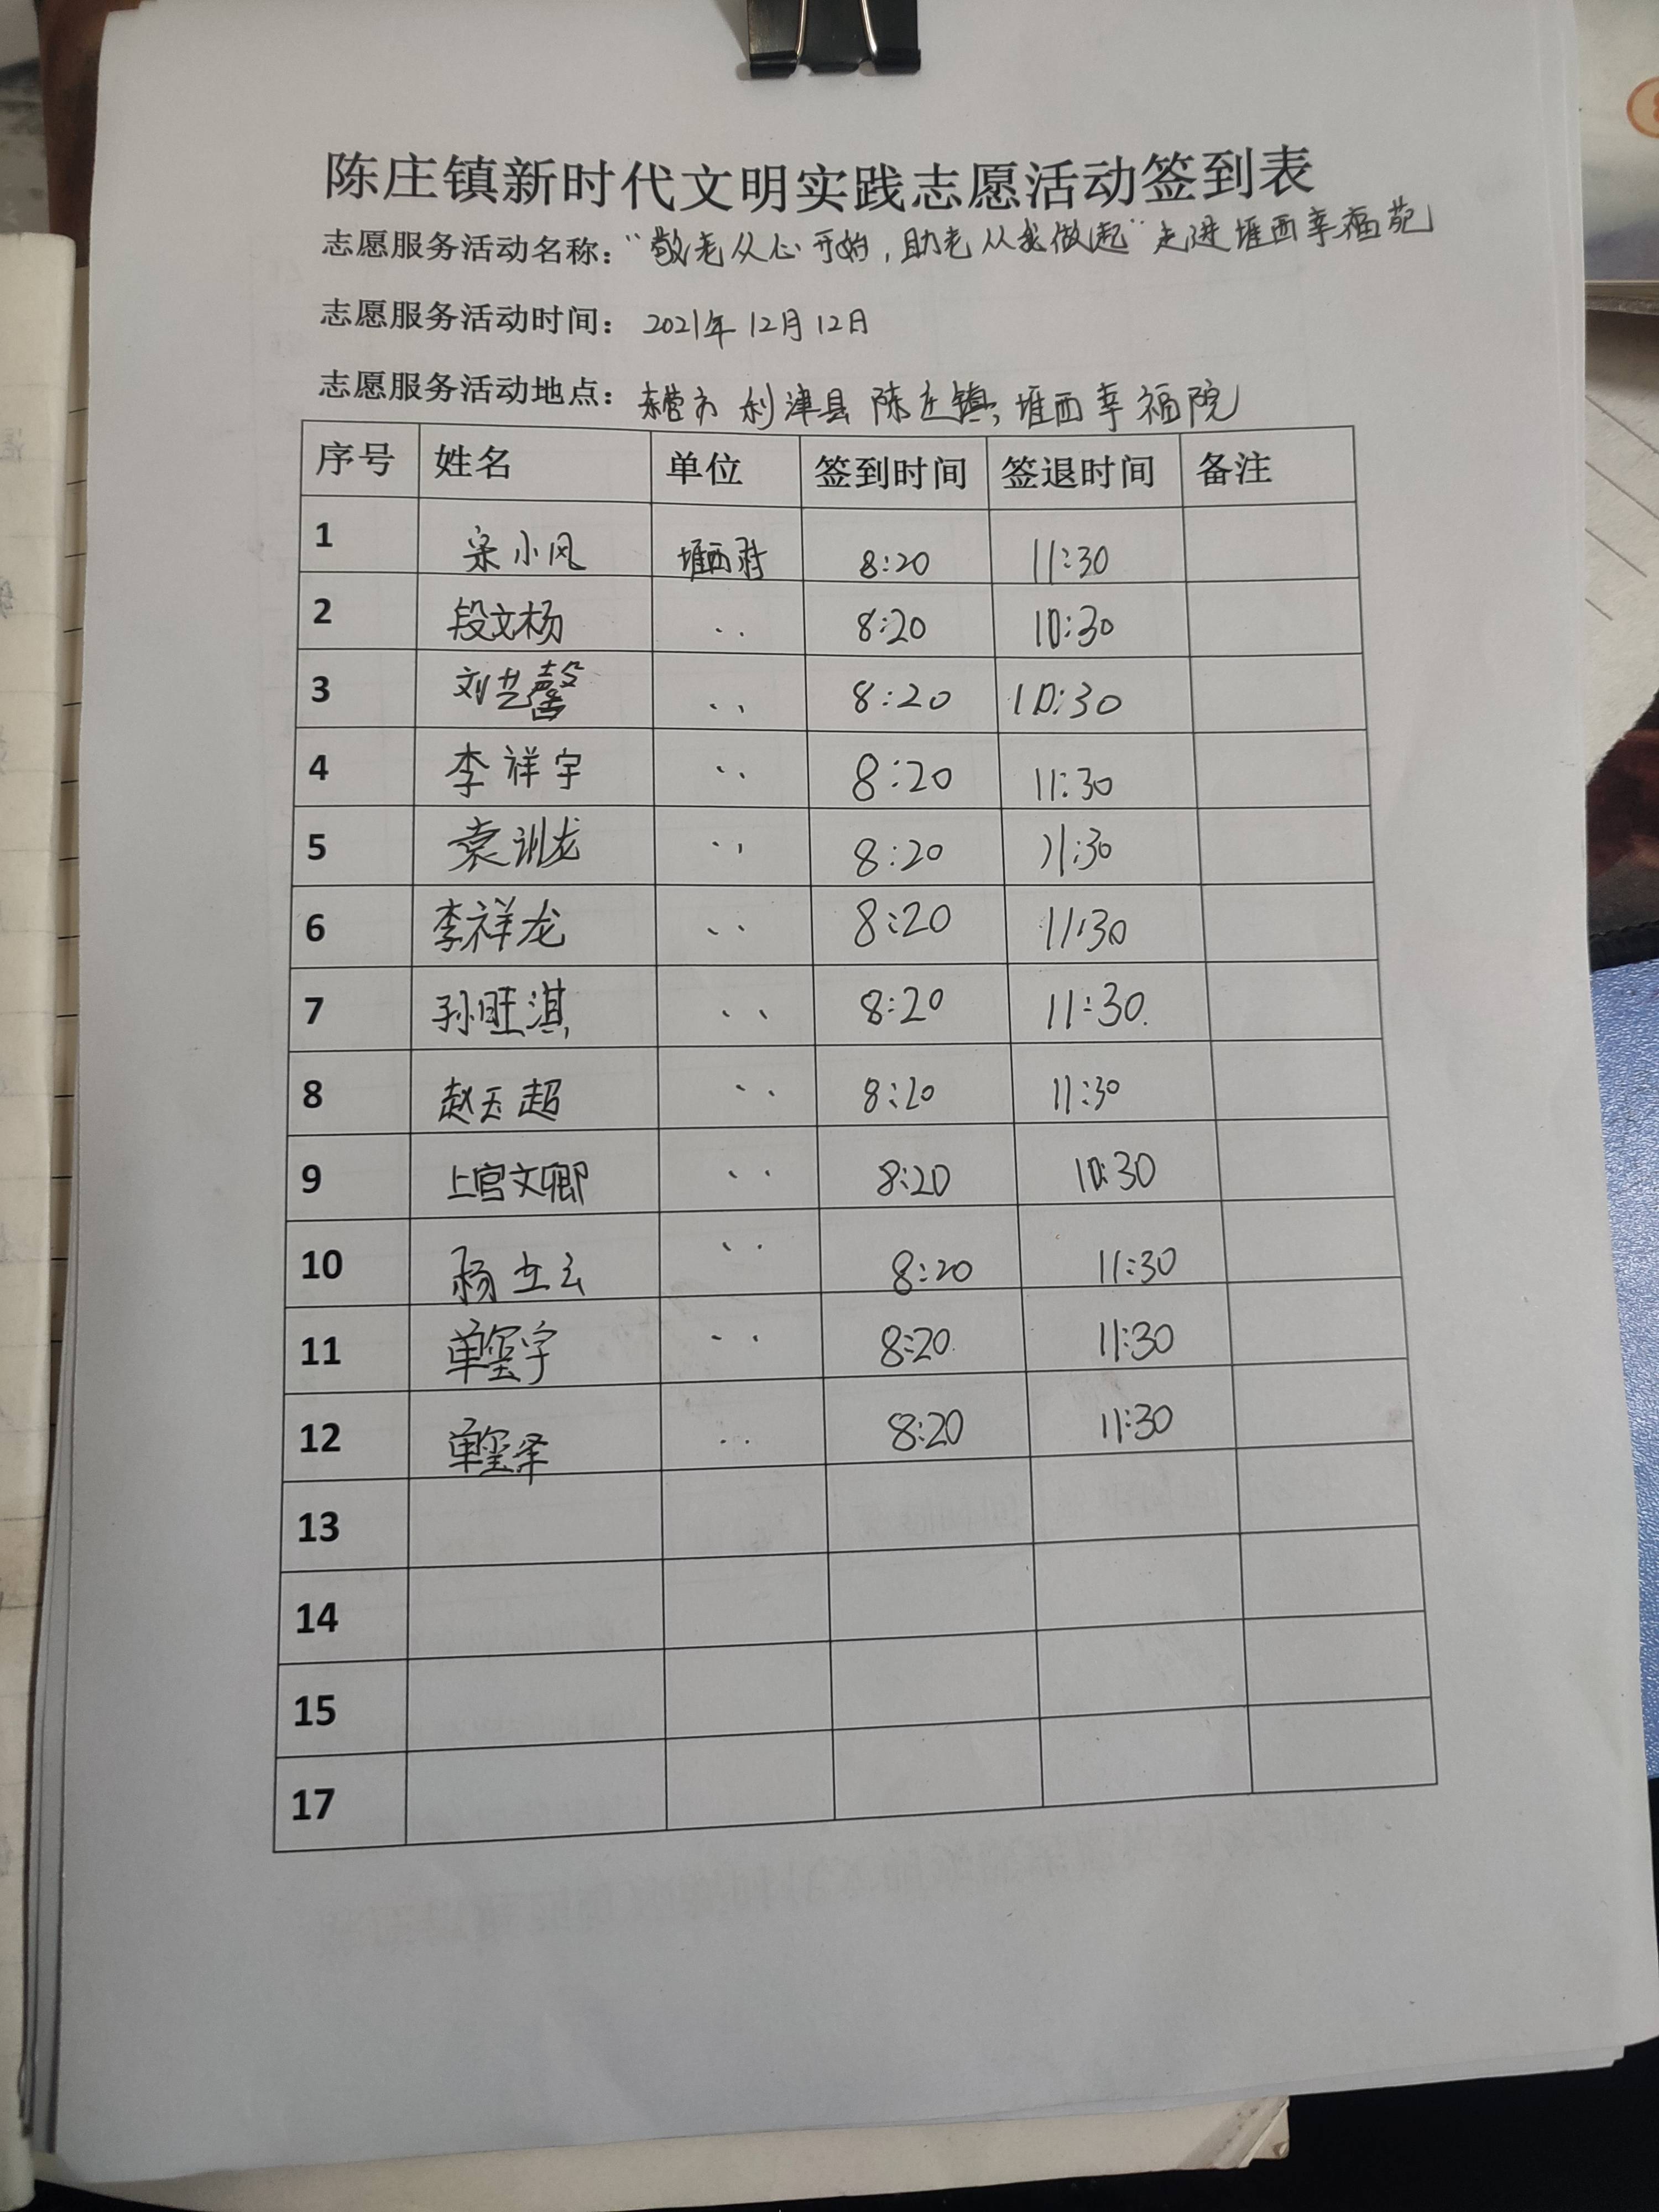 陈庄镇新时代文明实践志愿活动签到表
志愿服务活动名称："敬老从心开始，助老从我做起"走进堐西幸福苑
志愿服务活动时间：2021年12月12日
志愿服务活动地点：东营市利津县陈庄镇，堐西幸福院
序号 姓名 单位 签到时间 签退时间 备注
1 小风 堐西村 8:20 11:30
2 段文杨 〃 8:20 10:30
3 刘艺馨 〃 8:20 10:30
4 李祥宇 〃 8:20 11:30
5 袁训龙 〃 8:20 11:30
6 李祥龙 〃 8:20 11:30
7 孙旺淇 〃 8:20 11:30
8 赵玉超 〃 8:20 11:30
9 上官文卿 〃 8:20 10:30
10 杨立云 〃 8:20 11:30
11 单宇 〃 8:20 11:30
12 单泽 〃 8:20 11:30
13
14
15
17